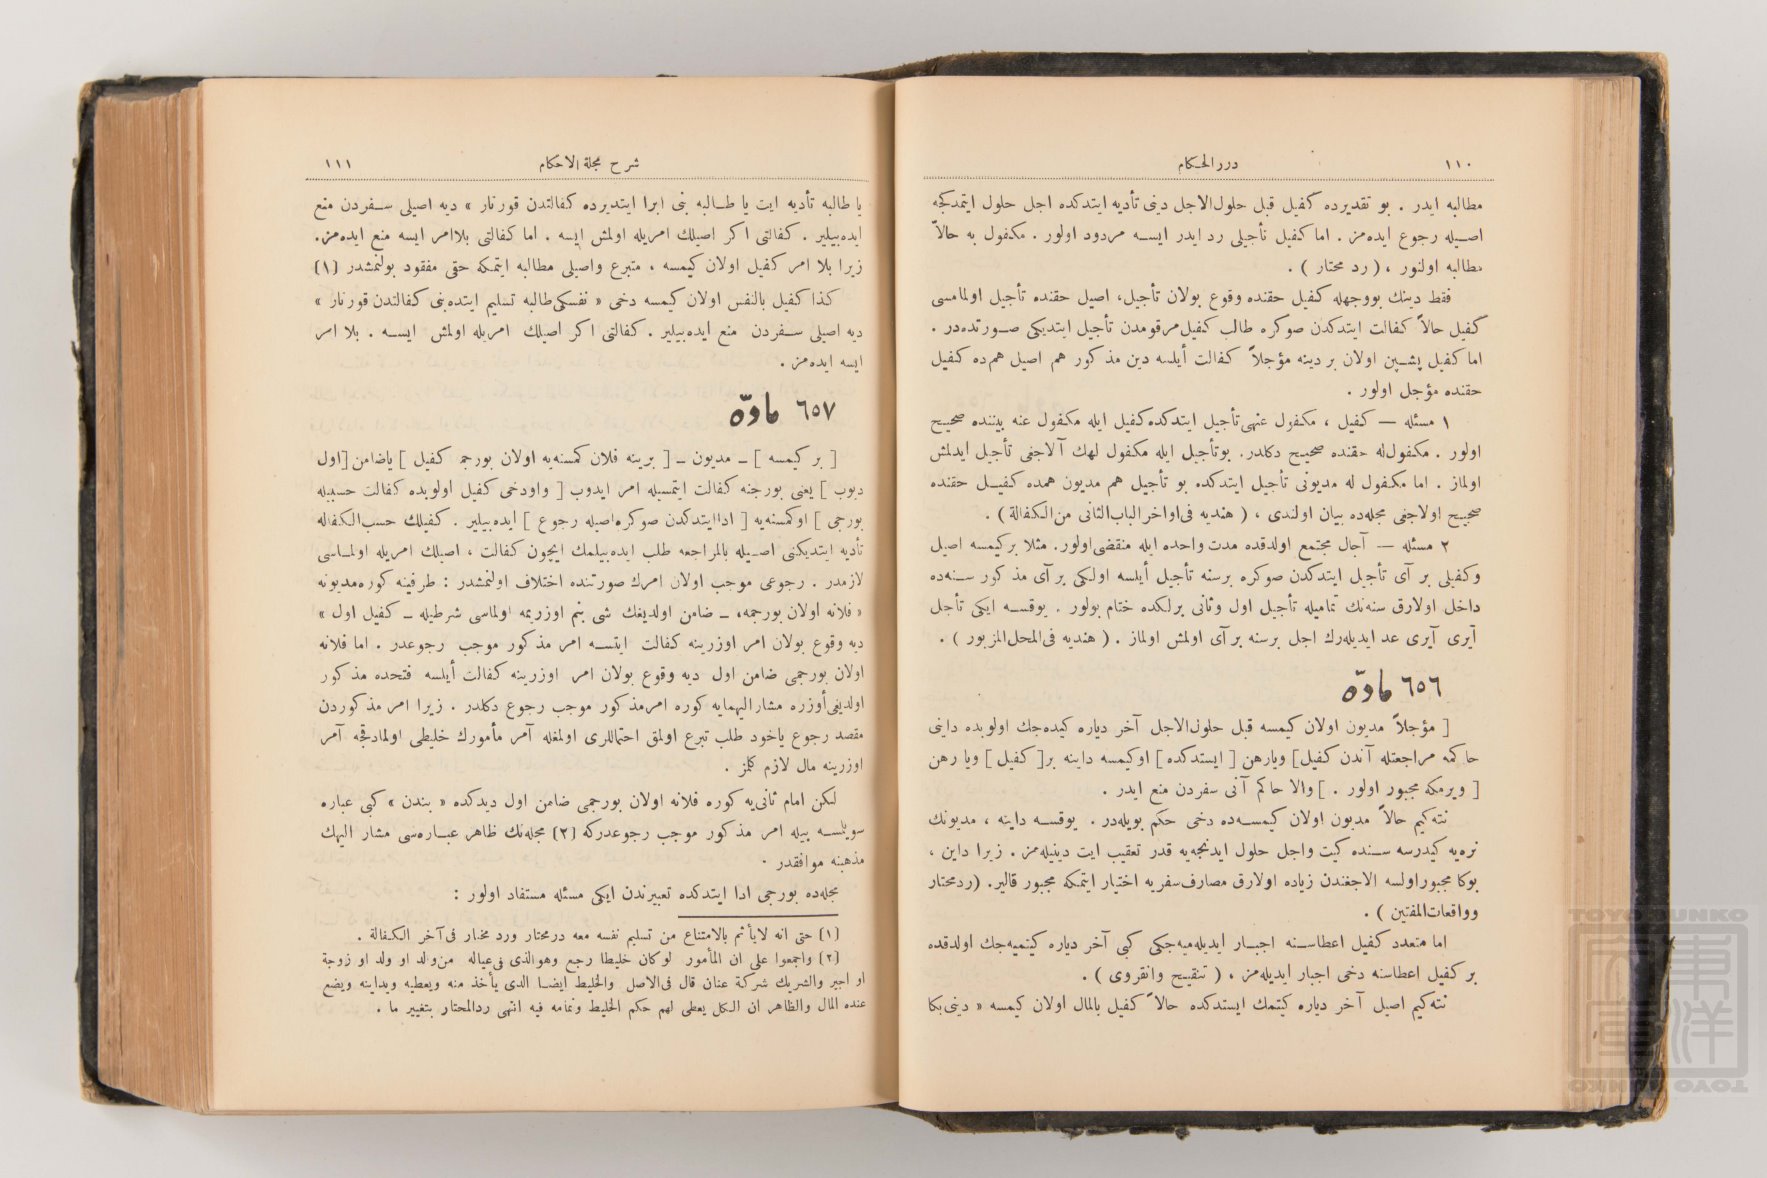 ١١٠
درر الحكام
مطالبه ايدر . بو تقديرده كفيل قبل حلول‌الاجل دينى تأديه ايتدكده اجل حلول ايتمدكجه
اصيله رجوع ايده‌مز . اما كفيل تأجيلى رد ايدر ايسه مردود اولور . مكفول به حالاً
مطالبه اولنور ، ( رد محتار ) .
فقط دينك بووجهله كفيل حقنده وقوع بولان تأجيل، اصيل حقنده تأجيل اولمامسى
كفيل حالاً كفالت ايتدكدن صوكره طالب كفيل مرقومدن تأجيل ايتديكى صورتده‌در .
اما كفيل پشين اولان بر دينه مؤجلاً كفالت أيلسه دين مذكور هم اصيل هم‌ده كفيل
حقنده مؤجل اولور .
١ مسئله — كفيل ، مكفول عنهى تأجيل ايتدكده كفيل ايله مكفول عنه بيننده صحيح
اولور . مكفول‌له حقنده صحيح دكلدر. بوتأجيل ايله مكفول لهك آلاجغى تأجيل ايدلمش
اولماز . اما مكفول له مديونى تأجيل ايتدكده بو تأجيل هم مديون همده كفيل حقنده
صحيح اولاجغى مجله‌ده بيان اولندى ، ( هنديه فى‌اواخرالباب‌الثانى من‌الكفالة ) .
٢ مسئله — آجال مجتمع اولدقده مدت واحده ايله منقضى اولور. مثلا بركيمسه اصيل
وكفيلى بر آى تأجيل ايتدكدن صوكره برسنه تأجيل أيلسه اولكى بر آى مذكور سنه‌ده
داخل اولارق سنه‌نك تماميله تأجيل اول وثانى برلكده ختام بولور . يوقسه ايكى تأجل
آيرى آيرى عد ايديله‌رك اجل برسنه بر آى اولمش اولماز . ( هنديه فى‌المحل‌المزبور ) .
٦٥٦ مادّه
[ مؤجلاً مديون اولان كيمسه قبل حلول‌الاجل آخر دياره كيده‌جك اولوبده داينى
حاكمه مراجعتله آندن كفيل] ويارهن [ ايستدكده ] اوكيمسه داينه بر[ كفيل ] ويا رهن
[ ويرمكه مجبور اولور . ] والا حاكم آنى سفردن منع ايدر .
نته‌كيم حالاً مديون اولان كيمسه‌ده دخى حكم بويله‌در . يوقسه داينه ، مديونك
نره‌يه كيدرسه سنده كيت واجل حلول ايدنجه‌يه قدر تعقيب ايت دينيله‌مز . زيرا داين ،
بوكا مجبور اولسه الاجغندن زياده اولارق مصارف سفريه اختيار ايتمكه مجبور قالير. (ردمحتار
وواقعات‌المفتين ) .
اما متعدد كفيل اعطاسنه اجبار ايديله‌ميه‌جكى كبى آخر دياره كيتميه‌جك اولدقده
بر كفيل اعطاسنه دخى اجبار ايديله‌مز ، ( تنقيح وانقروى ) .
نته‌كيم اصيل آخر دياره كيتمك ايستدكده حالاً كفيل بالمال اولان كيمسه « دينى‌بكا
شرح مجلة الاحكام
١١١
يا طالبه تأديه ايت يا طالبه بنى ابرا ايتديرده كفالتدن قورتار » ديه اصيلى سفردن منع
ايده‌بيلير . كفالتى اكر اصيلك امريله اولمش ايسه . اما كفالتى بلاامر ايسه منع ايده‌مز.
زيرا بلا امر كفيل اولان كيمسه ، متبرع واصيلى مطالبه ايتمكه حقى مفقود بولنمشدر (١)
كذا كفيل بالنفس اولان كيمسه دخى « نفسكى طالبه تسليم ايت‌ده بنى كفالتدن قورتار »
ديه اصيلى سفردن منع ايده‌بيلير . كفالتى اكر اصيلك امريله اولمش ايسه . بلا امر
ايسه ايده‌مز .
٦٥٧ مادّه
[ بر كيمسه ] ـ مديون ـ [ برينه فلان كمسنه‌يه اولان بورجمه كفيل ] ياضامن [اول
ديوب ] يعنى بورجنه كفالت ايتمسيله امر ايدوب [ واودخى كفيل اولوبده كفالت حسبيله
بورجى ] اوكمسنه‌يه [ اداايتدكدن صوكره‌اصيله رجوع ] ايده‌بيلير . كفيلك حسب‌الكفاله
تأديه ايتديكنى اصيله بالمراجعه طلب ايده‌بيلمك ايچون كفالت ، اصيلك امريله اولماسى
لازمدر . رجوعى موجب اولان امرك صورتنده اختلاف اولنمشدر : طرفينه كوره‌مديونه
« فلانه اولان بورجمه، ـ ضامن اولديغك شى بنم اوزريمه اولماسى شرطيله ـ كفيل اول »
ديه وقوع بولان امر اوزرينه كفالت ايتسه امر مذكور موجب رجوعدر . اما فلانه
اولان بورجمى ضامن اول ديه وقوع بولان امر اوزرينه كفالت أيلسه فتحده مذكور
اولديغى أوزره مشاراليهمايه كوره امرمذكور موجب رجوع دكلدر . زيرا امر مذكوردن
مقصد رجوع ياخود طلب تبرع اولمق احتماللرى اولمغله آمر مأمورك خليطى اولمادقجه آمر
اوزرينه مال لازم كلمز .
لكن امام ثانى‌يه كوره فلانه اولان بورجمى ضامن اول ديدكده « بندن » كبى عباره
سويلسه بيله امر مذكور موجب رجوعدركه (٢) مجله‌نك ظاهر عباره‌سى مشار اليهك
مذهبنه موافقدر .
مجله‌ده بورجى ادا ايتدكده تعبيرندن ايكى مسئله مستفاد اولور :
(١) حتى انه لايأثم بالامتناع من تسليم نفسه معه درمختار ورد مختار فى‌آخر الكفالة .
(٢) واجمعوا على ان المأمور لوكان خليطا رجع وهوالذى فى‌عياله من‌والد او ولد او زوجة
او اجير والشريك شركة عنان قال فى‌الاصل والخليط ايضا الذى يأخذ منه ويعطيه ويداينه ويضع
عنده المال والظاهر ان الكل يعطى لهم حكم الخليط وتمامه فيه انتهى ردالمحتار بتغيير ما .
TOYO BUNKO
東洋文庫
TOYO BUNKO